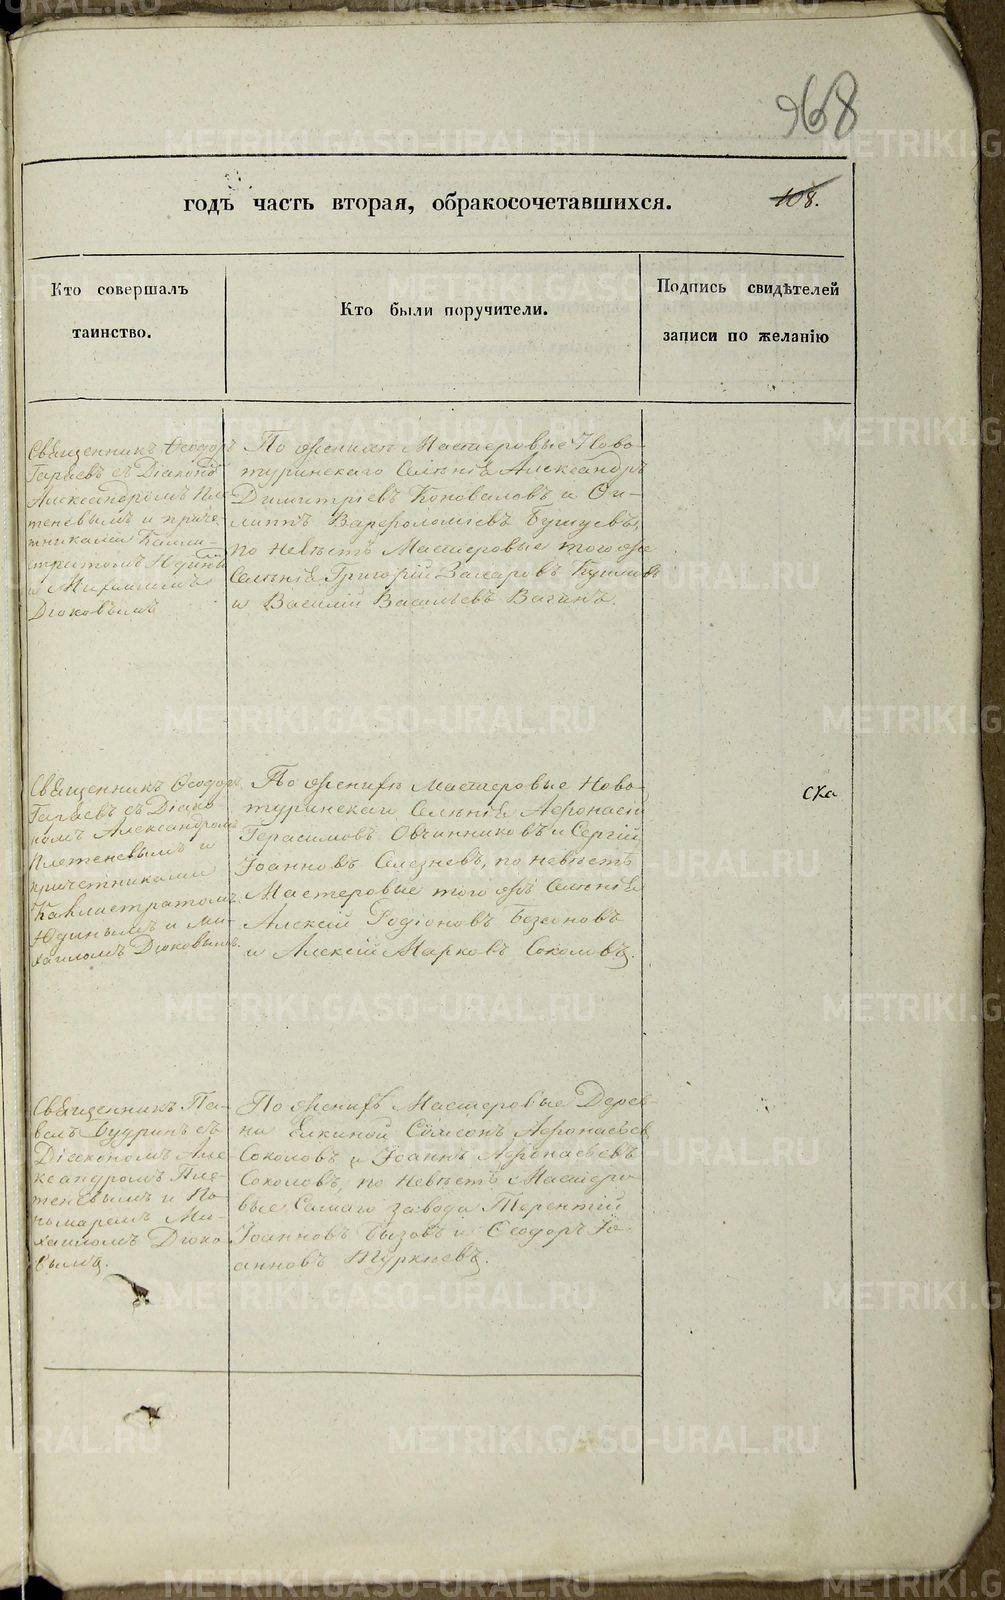 968
годъ часть вторая, обракосочетавшихся.
108.
Кто совершалъ
таинство.
Кто были поручители.
Подпись свидѣтелей
записи по желанію
Священникъ Ѳеодоръ
Гаряевъ съ Діакономъ
Александромъ Пле-
теневымъ и приче-
тниками Калли-
стратомъ Юдинымъ
и Михаиломъ
Дюковымъ
По женихѣ Мастеровые Ново-
туринскаго Селенія Александръ
Димитріевъ Коноваловъ и Фи-
липпъ Варфоломѣевъ Бушуевъ,
по невѣстѣ Мастеровые того же
Селенія Григорій Захаровъ
и Василій Васильевъ Вагинъ.
Священникъ Ѳеодоръ
Гаряевъ съ Діако-
номъ Александромъ
Плетеневымъ и
причетниками
Каллистратомъ
Юдинымъ и Ми-
хаиломъ Дюковымъ.
По женихѣ Мастеровые Ново-
туринскаго Селенія Афонасій
Герасимовъ Овчинниковъ и Сергій
Іоанновъ Селезневъ, по невѣстѣ
Мастеровые того же Селенія
Алексій Родіоновъ
и Алексій Марковъ Соколовъ.
Священникъ Па-
велъ Будринъ съ
Діакономъ Але-
ксандромъ Пле-
теневымъ и По-
номаремъ Ми-
хаиломъ Дюко-
вымъ.
По женихѣ Мастеровые Дерев-
ни Елкиной Сѵмеонъ Афонасьевъ
Соколовъ и Іоаннъ Афонасьевъ
Соколовъ, по невѣстѣ Мастеро-
вые Самаго завода Терентій
Іоанновъ Бызовъ и Ѳеодоръ Іо-
анновъ
METRIKI.GASO-URAL.RU